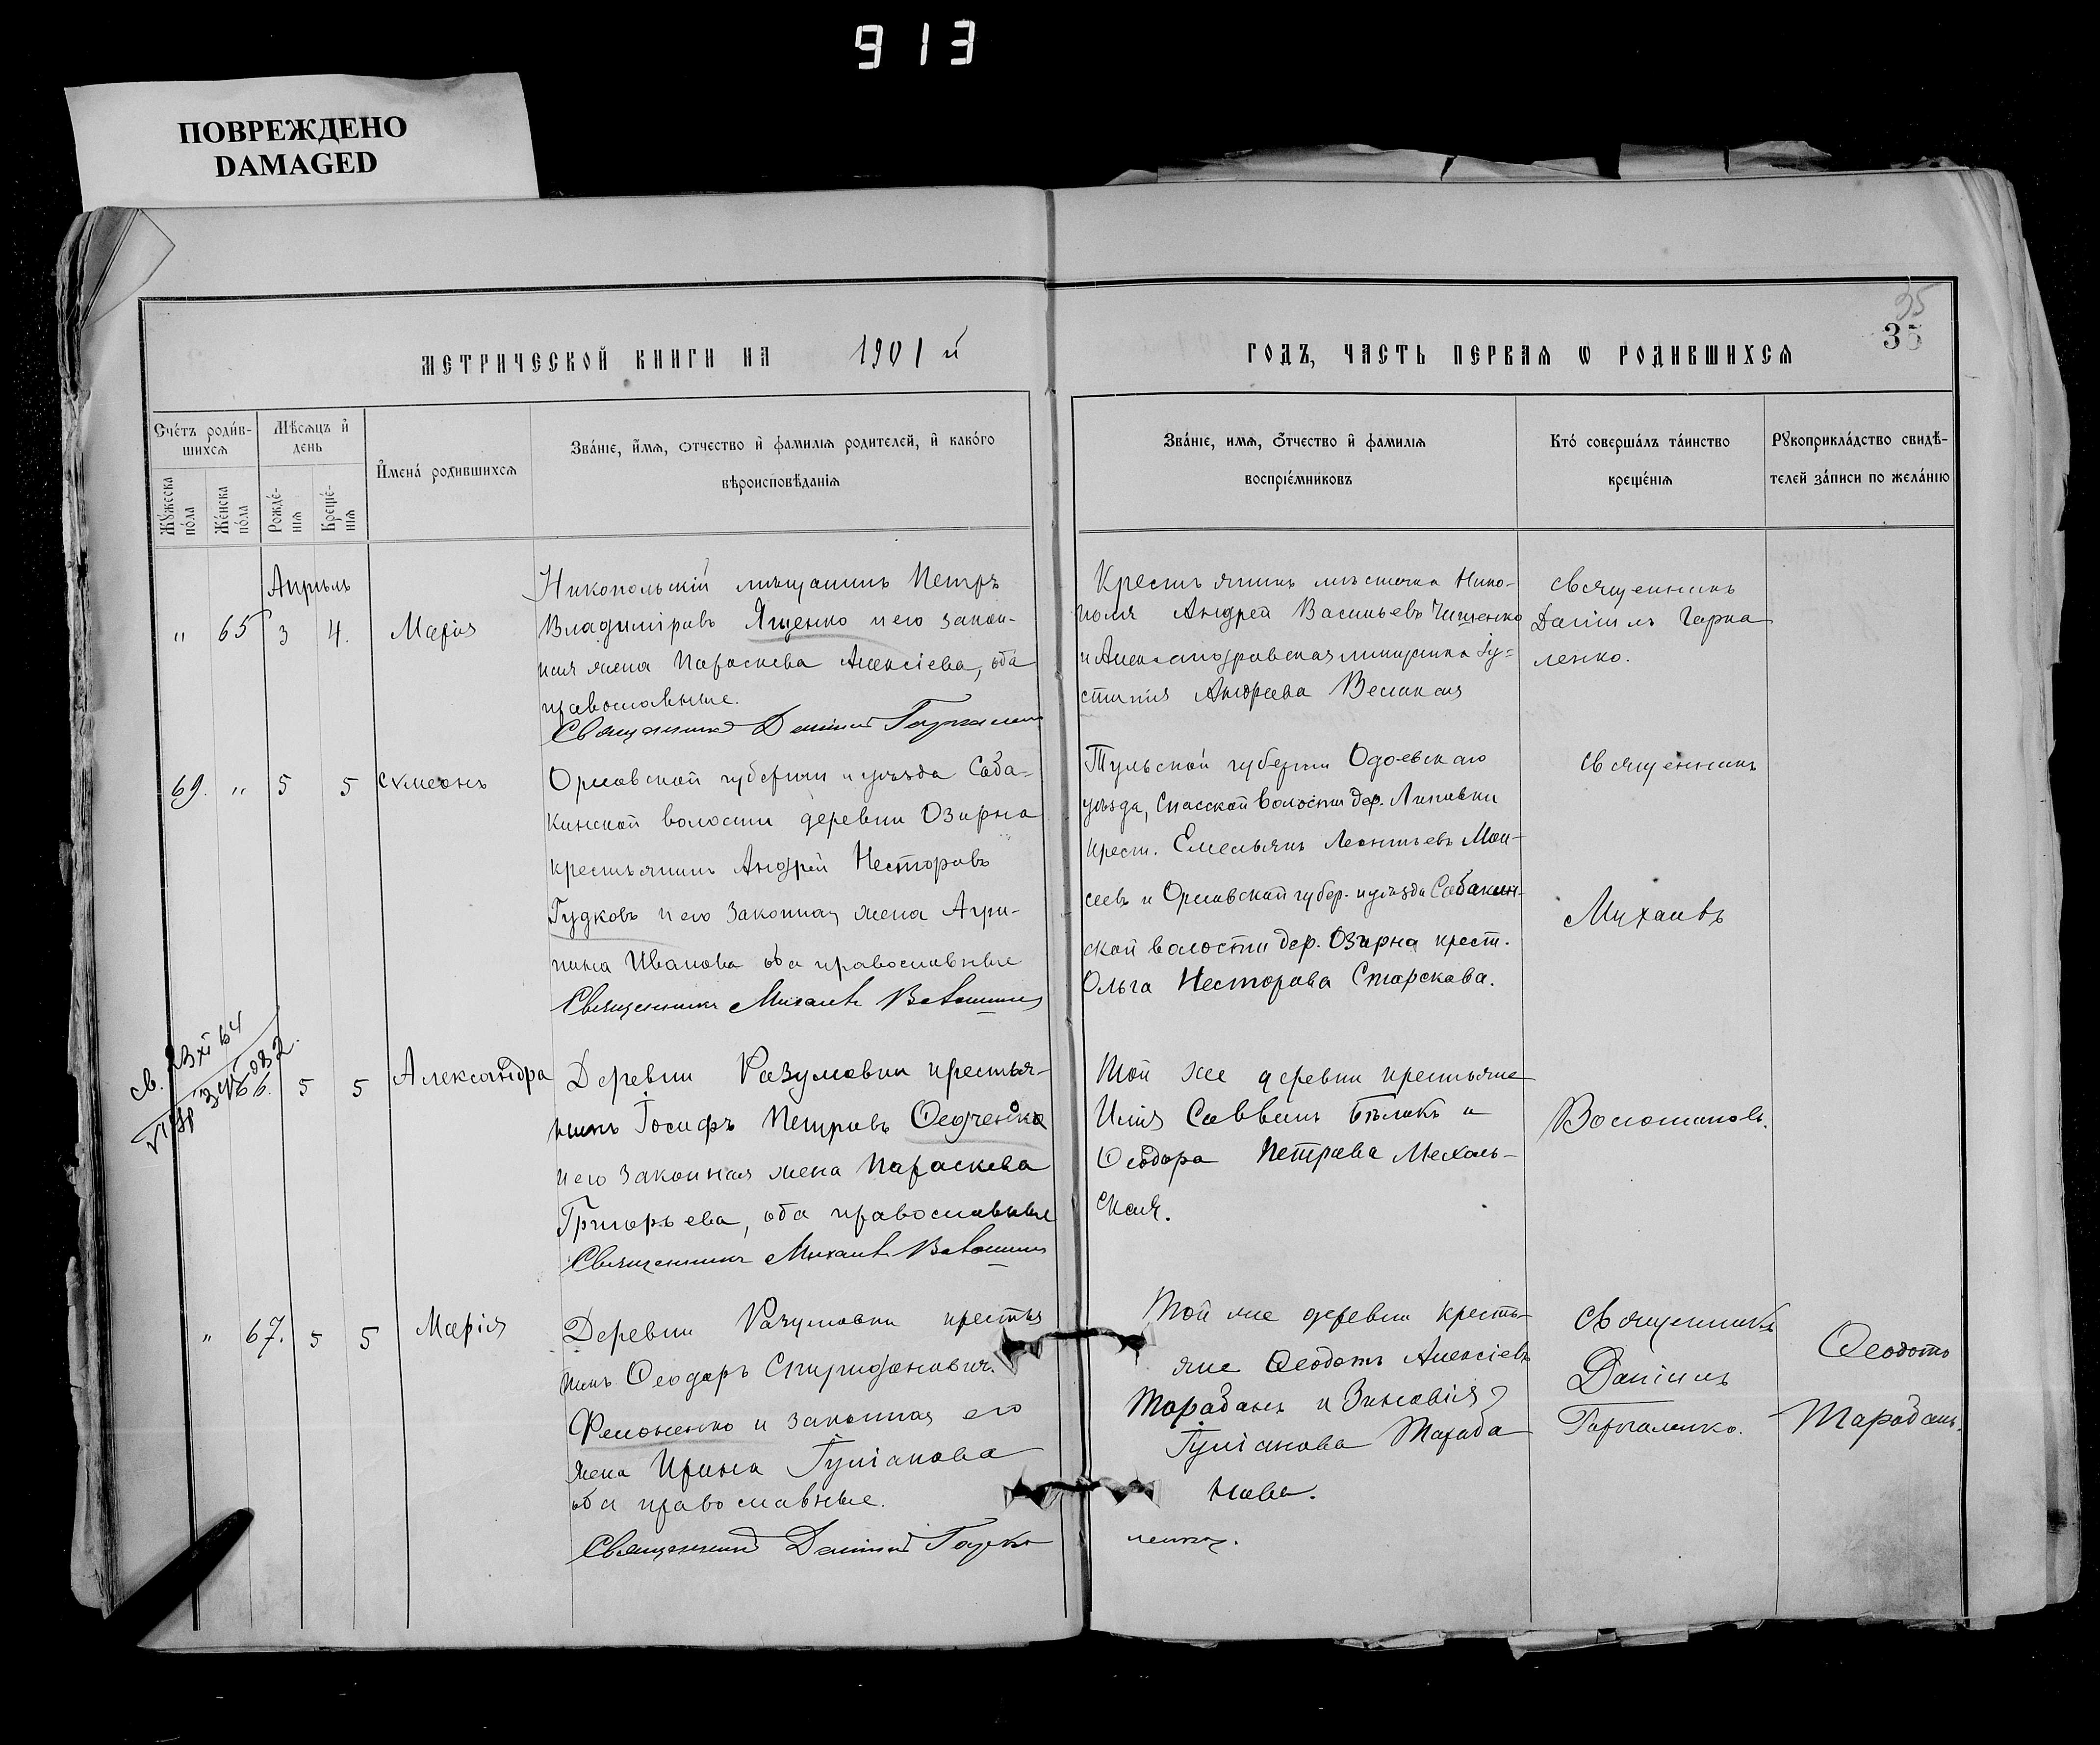 913
ПОВРЕЖДЕНО
DAMAGED
35
35
МЕТРИЧЕСКОЙ КНИГИ НА 1901 й
ГОДЪ, ЧАСТЬ ПЕРВАѦ Ѡ РОДИВШИХСѦ
Счетъ родив-
шихсѧ
Мужеска
пола
Женска
пола
Мѣсѧцъ и
день
Рожде-
нїѧ
Креще-
нїѧ
Имена родившихсѧ
Званїе, имѧ, отчество и фамилїѧ родителей, и какого
вѣроисповѣданїѧ
Званїе, имѧ, отчество и фамилїѧ
воспрїемниковъ
Кто совершалъ таинство
крещенїѧ
Рꙋкоприкладство свидѣ-
телей записи по желанїю
Апрѣль
" 65 3 4. Марія
Никопольскій мѣщанинъ Петръ
Владиміровъ Ященко и его закон-
ная жена Параскева Алексіева, оба
православные.
Священникъ Даніилъ Гаркаленко
Крестьянинъ мѣстечка Нико-
поля Андрей Васильевъ Чищенко
и Александровская мѣщанка Іу-
стинія Андреева Великая
Священникъ
Даніилъ Гарка
ленко.
69. " 5 5 Сѵмеонъ
Орловской губерніи и уѣзда Соба-
кинской волости деревни Озирна
крестьянинъ Андрей Несторовъ
Гудковъ и его законная жена Агри-
пина Иванова оба православные
Священникъ Михаилъ
Тульской губерніи Одоевскаго
уѣзда, Спасской волости дер. Липовки
крест. Емельянъ Леонтьевъ Мои-
сеевъ и Орловской губер. и уѣзда Собакин-
ской волости дер. Озирна крест.
Ольга Несторова Старскава.
Священникъ
Михаилъ
св. 23 XI 64
66. 5 5 Александра
Деревни Разумовки крестья-
нинъ Іосифъ Петровъ Ѳедченко
и его законная жена Параскева
Григорьева, оба православные
Священникъ Михаилъ
Той же деревни крестьяне
Илія Саввинъ Бѣликъ и
Ѳеодора Петрова Мехаль-
ская.
" 67. 5 5 Марія
Деревни Разумовки крестья
нинъ Ѳеодоръ Спиридоновичъ
Филоненко и законная его
жена Ирина Іуліанова
оба православные.
Священникъ Даніилъ Гарка
ленко.
Той же деревни кресть-
яне Ѳеодотъ Алексіевъ
Тарабанъ и Зиновія
Іуліанова Тараба
нова.
Священникъ
Даніилъ
Гаркаленко.
Ѳеодотъ
Тарабанъ.